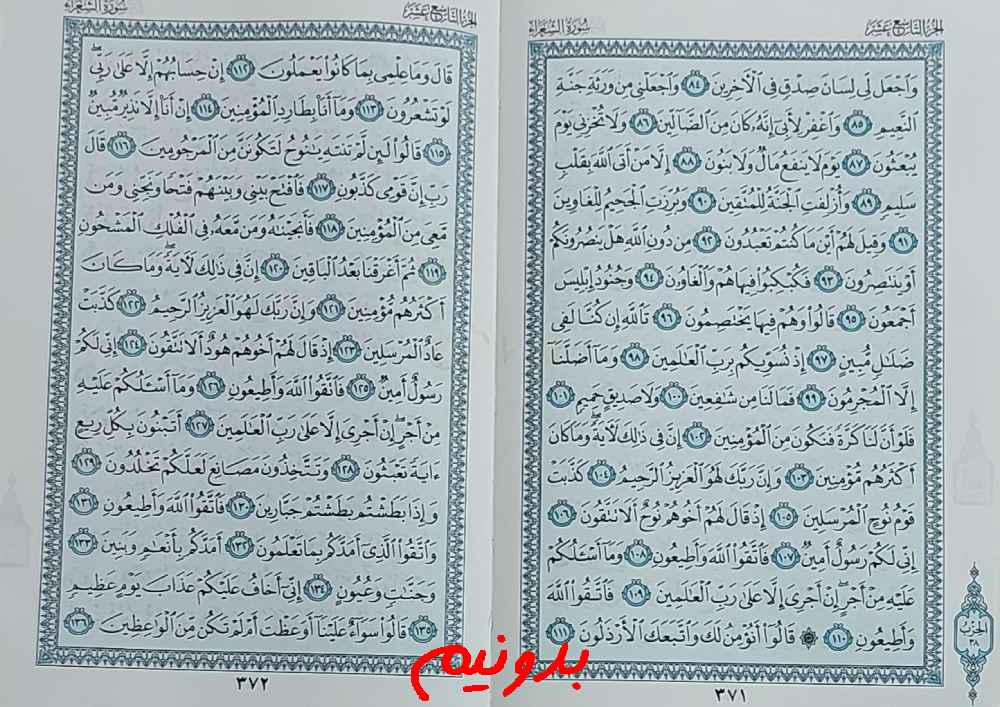 الجزء التاسع عشر
سورة الشعراء
وَاجْعَل لِّي لِسَانَ صِدْقٍ فِي الْآخِرِينَ ٨٤ وَاجْعَلْنِي مِن وَرَثَةِ جَنَّةِ
النَّعِيمِ ٨٥ وَاغْفِرْ لِأَبِي إِنَّهُ كَانَ مِنَ الضَّالِّينَ ٨٦ وَلَا تُخْزِنِي يَوْمَ
يُبْعَثُونَ ٨٧ يَوْمَ لَا يَنفَعُ مَالٌ وَلَا بَنُونَ ٨٨ إِلَّا مَنْ أَتَى اللَّهَ بِقَلْبٍ
سَلِيمٍ ٨٩ وَأُزْلِفَتِ الْجَنَّةُ لِلْمُتَّقِينَ ٩٠ وَبُرِّزَتِ الْجَحِيمُ لِلْغَاوِينَ
٩١ وَقِيلَ لَهُمْ أَيْنَ مَا كُنتُمْ تَعْبُدُونَ ٩٢ مِن دُونِ اللَّهِ هَلْ يَنصُرُونَكُمْ
أَوْ يَنتَصِرُونَ ٩٣ فَكُبْكِبُوا فِيهَا هُمْ وَالْغَاوُونَ ٩٤ وَجُنُودُ إِبْلِيسَ
أَجْمَعُونَ ٩٥ قَالُوا وَهُمْ فِيهَا يَخْتَصِمُونَ ٩٦ تَاللَّهِ إِن كُنَّا لَفِي
ضَلَالٍ مُّبِينٍ ٩٧ إِذْ نُسَوِّيكُم بِرَبِّ الْعَالَمِينَ ٩٨ وَمَا أَضَلَّنَا
إِلَّا الْمُجْرِمُونَ ٩٩ فَمَا لَنَا مِن شَافِعِينَ ١٠٠ وَلَا صَدِيقٍ حَمِيمٍ ١٠١
فَلَوْ أَنَّ لَنَا كَرَّةً فَنَكُونَ مِنَ الْمُؤْمِنِينَ ١٠٢ إِنَّ فِي ذَٰلِكَ لَآيَةً ۖ وَمَا كَانَ
أَكْثَرُهُم مُّؤْمِنِينَ ١٠٣ وَإِنَّ رَبَّكَ لَهُوَ الْعَزِيزُ الرَّحِيمُ ١٠٤ كَذَّبَتْ
قَوْمُ نُوحٍ الْمُرْسَلِينَ ١٠٥ إِذْ قَالَ لَهُمْ أَخُوهُمْ نُوحٌ أَلَا تَتَّقُونَ ١٠٦
إِنِّي لَكُمْ رَسُولٌ أَمِينٌ ١٠٧ فَاتَّقُوا اللَّهَ وَأَطِيعُونِ ١٠٨ وَمَا أَسْأَلُكُمْ
عَلَيْهِ مِنْ أَجْرٍ ۖ إِنْ أَجْرِيَ إِلَّا عَلَىٰ رَبِّ الْعَالَمِينَ ١٠٩ فَاتَّقُوا اللَّهَ
وَأَطِيعُونِ ١١٠ ۞ قَالُوا أَنُؤْمِنُ لَكَ وَاتَّبَعَكَ الْأَرْذَلُونَ ١١١
الحزب
٣٨
٣٧١
الجزء التاسع عشر
سورة الشعراء
قَالَ وَمَا عِلْمِي بِمَا كَانُوا يَعْمَلُونَ ١١٢ إِنْ حِسَابُهُمْ إِلَّا عَلَىٰ رَبِّي ۖ
لَوْ تَشْعُرُونَ ١١٣ وَمَا أَنَا بِطَارِدِ الْمُؤْمِنِينَ ١١٤ إِنْ أَنَا إِلَّا نَذِيرٌ مُّبِينٌ
١١٥ قَالُوا لَئِن لَّمْ تَنتَهِ يَا نُوحُ لَتَكُونَنَّ مِنَ الْمَرْجُومِينَ ١١٦ قَالَ
رَبِّ إِنَّ قَوْمِي كَذَّبُونِ ١١٧ فَافْتَحْ بَيْنِي وَبَيْنَهُمْ فَتْحًا وَنَجِّنِي وَمَن
مَّعِيَ مِنَ الْمُؤْمِنِينَ ١١٨ فَأَنجَيْنَاهُ وَمَن مَّعَهُ فِي الْفُلْكِ الْمَشْحُونِ
١١٩ ثُمَّ أَغْرَقْنَا بَعْدُ الْبَاقِينَ ١٢٠ إِنَّ فِي ذَٰلِكَ لَآيَةً ۖ وَمَا كَانَ
أَكْثَرُهُم مُّؤْمِنِينَ ١٢١ وَإِنَّ رَبَّكَ لَهُوَ الْعَزِيزُ الرَّحِيمُ ١٢٢ كَذَّبَتْ
عَادٌ الْمُرْسَلِينَ ١٢٣ إِذْ قَالَ لَهُمْ أَخُوهُمْ هُودٌ أَلَا تَتَّقُونَ ١٢٤ إِنِّي لَكُمْ
رَسُولٌ أَمِينٌ ١٢٥ فَاتَّقُوا اللَّهَ وَأَطِيعُونِ ١٢٦ وَمَا أَسْأَلُكُمْ عَلَيْهِ
مِنْ أَجْرٍ ۖ إِنْ أَجْرِيَ إِلَّا عَلَىٰ رَبِّ الْعَالَمِينَ ١٢٧ أَتَبْنُونَ بِكُلِّ رِيعٍ
آيَةً تَعْبَثُونَ ١٢٨ وَتَتَّخِذُونَ مَصَانِعَ لَعَلَّكُمْ تَخْلُدُونَ ١٢٩
وَإِذَا بَطَشْتُم بَطَشْتُمْ جَبَّارِينَ ١٣٠ فَاتَّقُوا اللَّهَ وَأَطِيعُونِ ١٣١
وَاتَّقُوا الَّذِي أَمَدَّكُم بِمَا تَعْلَمُونَ ١٣٢ أَمَدَّكُم بِأَنْعَامٍ وَبَنِينَ ١٣٣
وَجَنَّاتٍ وَعُيُونٍ ١٣٤ إِنِّي أَخَافُ عَلَيْكُمْ عَذَابَ يَوْمٍ عَظِيمٍ
١٣٥ قَالُوا سَوَاءٌ عَلَيْنَا أَوَعَظْتَ أَمْ لَمْ تَكُن مِّنَ الْوَاعِظِينَ ١٣٦
٣٧٢
بدونیم